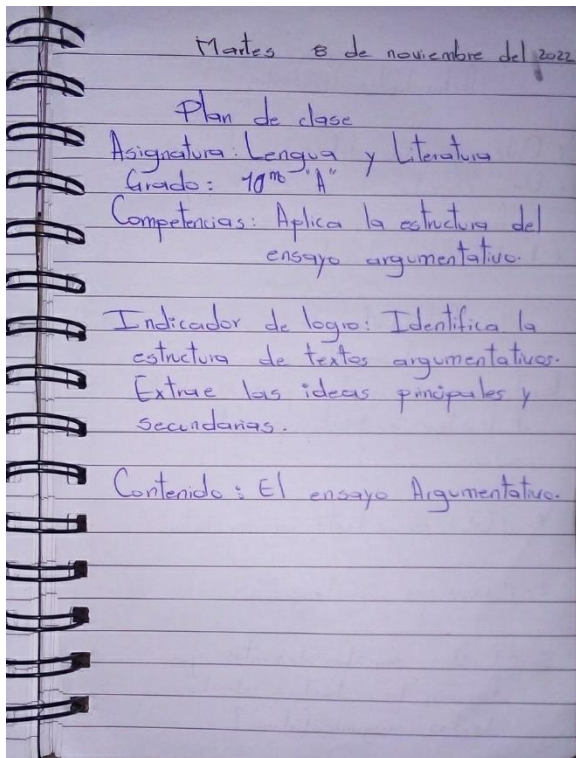 Martes 8 de noviembre del 2022
Plan de clase
Asignatura: Lengua y Literatura
Grado: 10mo "A"
Competencias: Aplica la estructura del
ensayo argumentativo.
Indicador de logro: Identifica la
estructura de textos argumentativos.
Extrae las ideas principales y
secundarias.
Contenido: El ensayo Argumentativo.